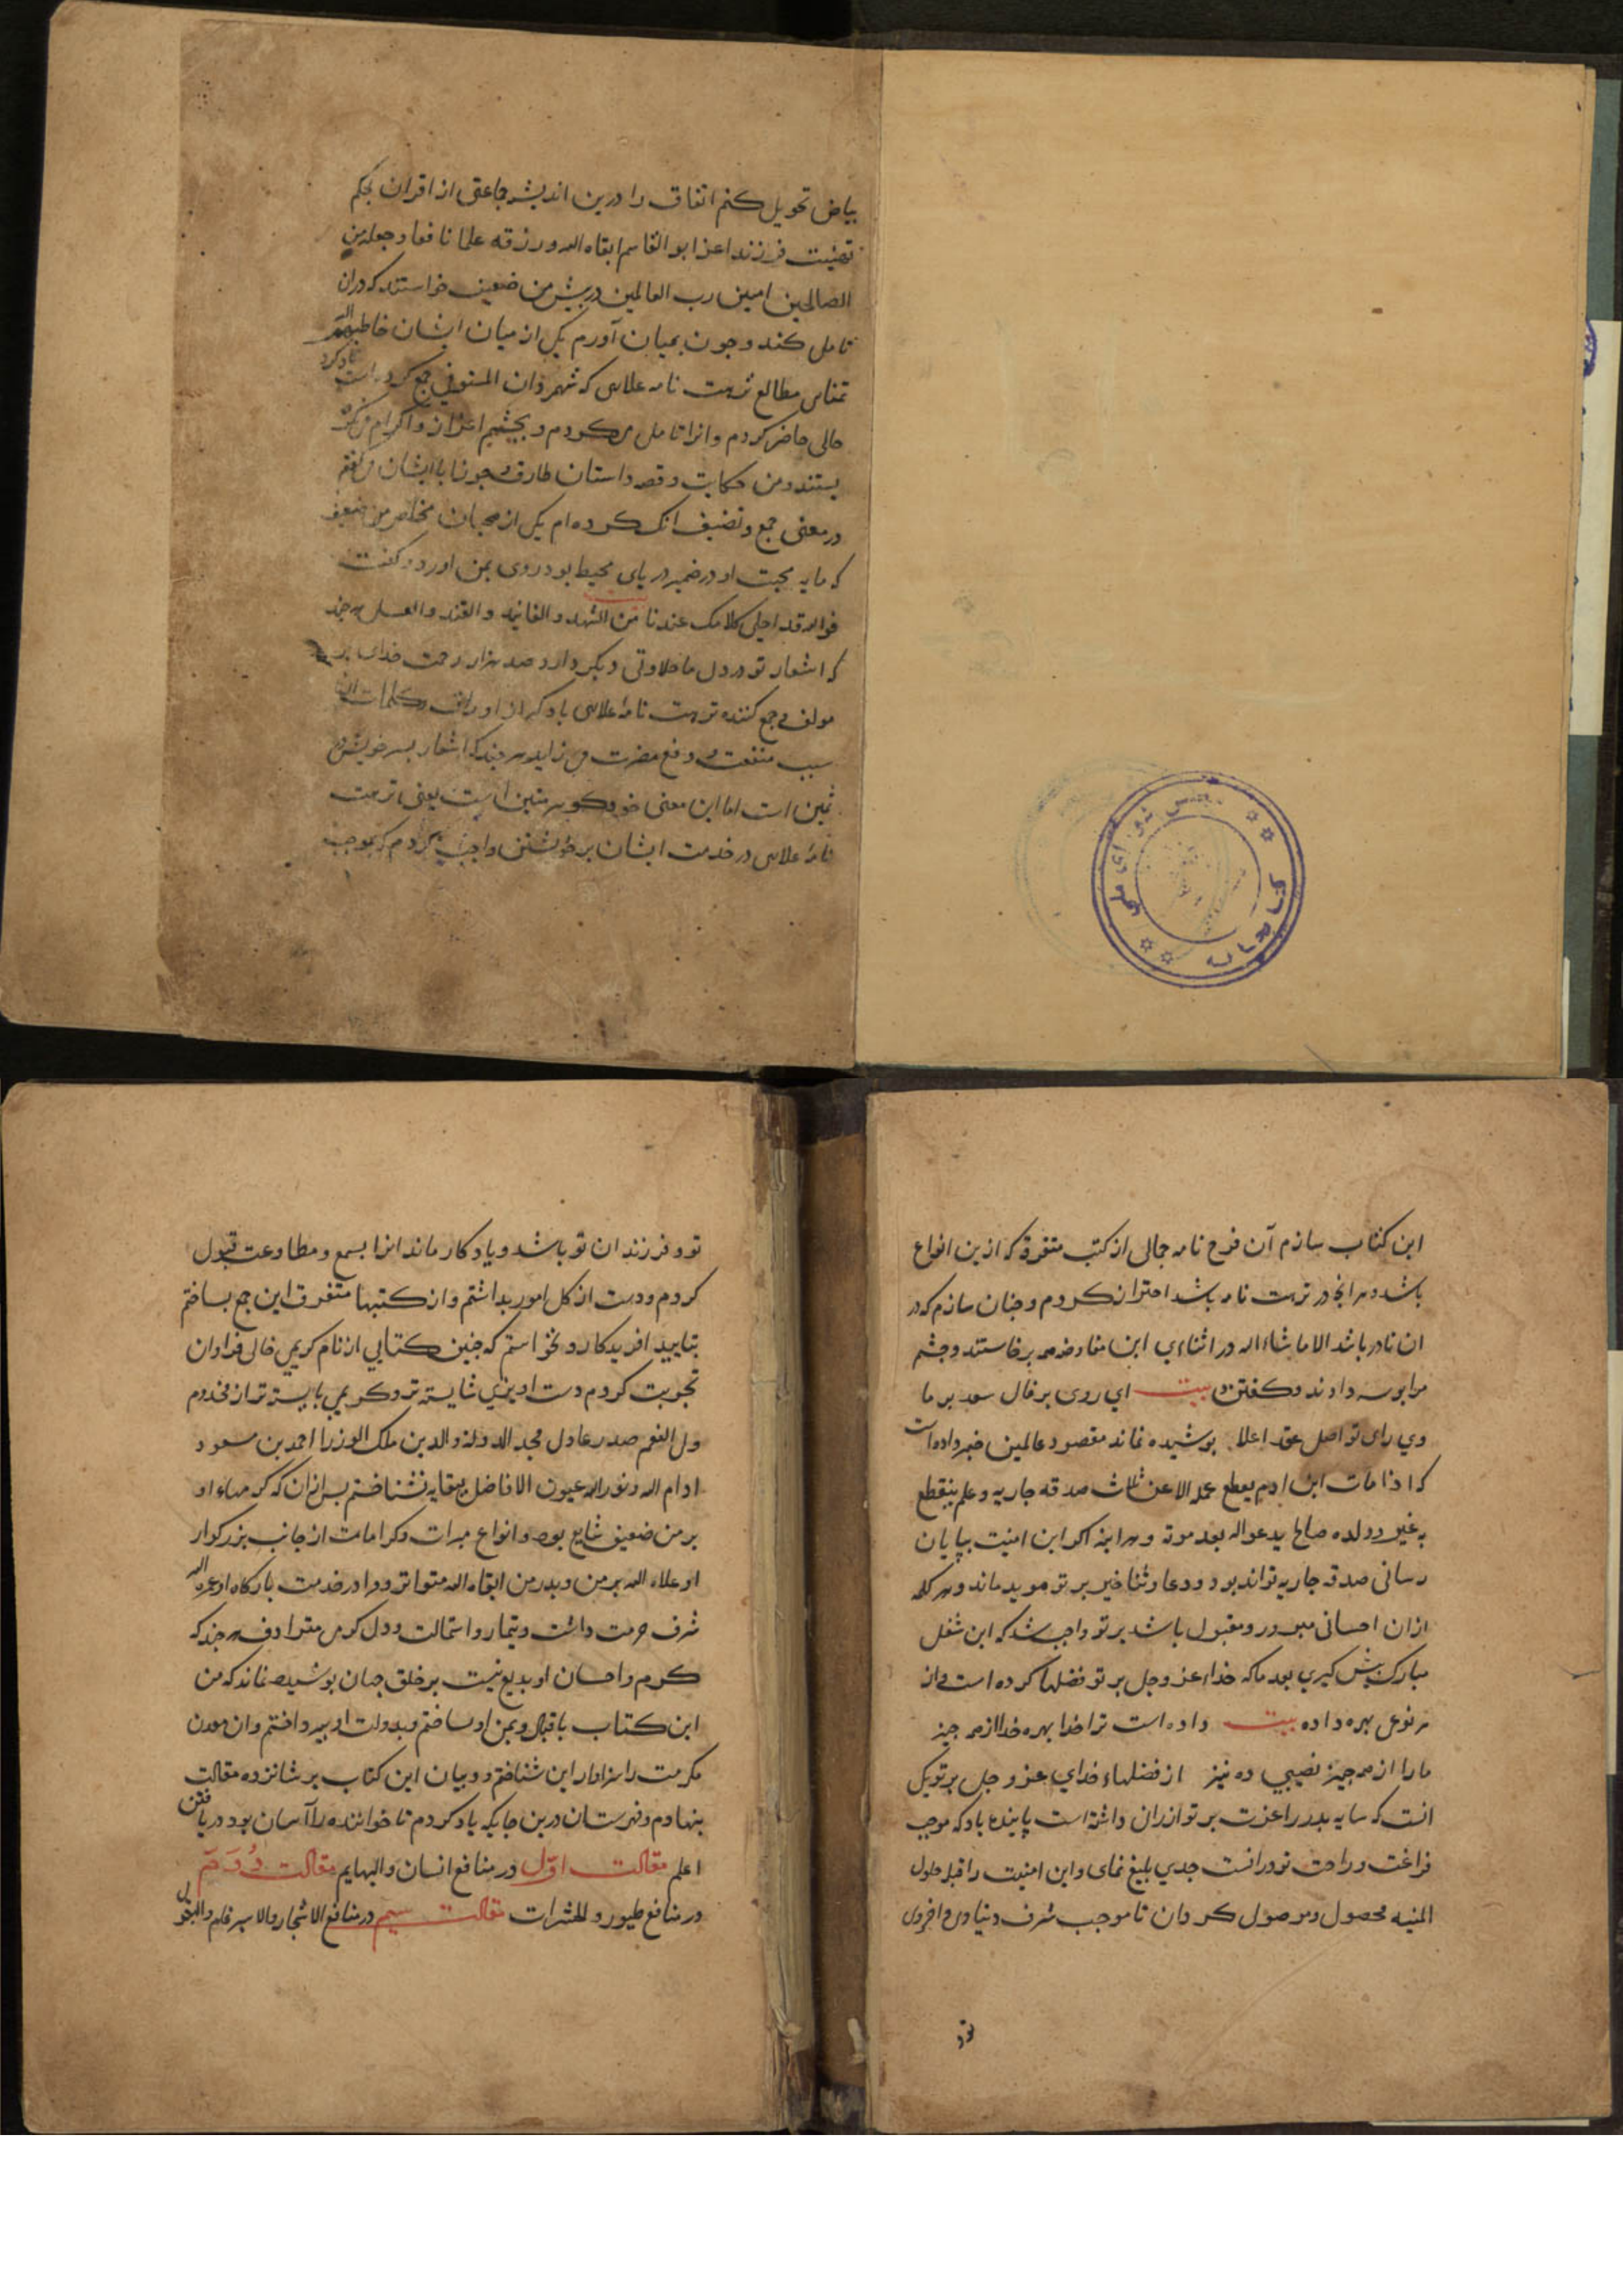 بیاض تحویل کنم اتفاق را درین اندیشه جماعتی از اقران بحکم
تهنیت فرزند اعز ابو القاسم ابقاه الله ورزقه علما نافعا وجعله من
الصالحین امین رب العالمین در پیش من ضعیف خواستند که دران
تامل کنند وجون بمیان آورم یکی از میان ایشان خاطبهم الله
تمناس مطالع نزهت نامه علاسی که شهمردان المستوفی جمع کرده است یاد کرد
حالی حاضر کردم وانرا تامل می کردم و بچشم اعزاز و اکرام می نکر
یستند ومن حکایت وقصه داستان طارق جون با ایشان می کفتم
در معنی جمع وتصنیف انک کرده ام یکی از محبان مخلص من ضعیف
که مایه محبت او در ضمیر دریای محیط بود روی بمن اورد و کفت
فوالله قد احلی کلامک عندنا من الشهد والفانید والقند والعسل هر جند
که اشعار تو در دل ما حلاوتی دیکر دارد صد هزار رحمت خدای بر
مولف وجمع کننده نزهت نامه علاسی باد که از اوراق وکلمات ان
سبب منفعت ودفع مضرت می زاید هر جند که اشعار بسر خویش در
ثمین است اما این معنی خود کوهر متین است یعنی نزهت
نامه علاسی در خدمت ایشان بر خویشتن واجب کردم که بموجب
کتابخانه مجلس شورای ملی
این کتاب سازم آن فرخ نامه جمالی از کتب متفرقه که ازین انواع
باشد وهر انجا در نزهت نامه باشد احتراز کردم وجنان سازم که در
ان نادر باشد الا ماشاء الله در اثناءی این مفاوضه بر خاستند وجشم
مرا بوسه دادند وکفتند بیت ای روی بر فال سعد بر ما
وی رای تو اصل عقد اعلا بوشیده نماند مقصود عالمین خبر داده است
که اذا مات ابن ادم ینقطع عمله الا عن ثلاث صدقه جاریه وعلم ینقطع
به غیر وولده صالح یدعو اله بعد موته وهر اینه اکر این امنیت بپایان
رسانی صدقه جاریه تواند بود ودعا وثنا خیر بر تو موید ماند وهر کله
ازان احسانی مبرور ومقبول باشد بر تو واجب شد که این شغل
مبارک پیش کیری بعد ما که خداء عز وجل بر تو فضلها کرده است واز
هر نوعی بهره داده بیت داده است ترا خدا بهره خدا از هر جیز
ما را از همه جیز نصیبی ده نیز از فضلهاء خدای عز وجل بر تو یکی
انست که سایه بدر را عزت بر تو ازران داشته است پاینده باد که موجب
فراغت وراحت تو در انست جدی بلیغ نمای واین امنیت را قبل حلول
المنیه محصول وموصول کردان تا موجب شرف دنیاوی واخروی
تو و
تو وفرزندان تو باشد ویادکار ماند انرا بسمع ومطاوعت قبول
کردم ودست از کل امور بداشتم واز کتبها متفرق این جمع بساختم
بتایید افریدکار ونخواستم که جنین کتابی از نام کریمی خالی فراوان
تجربت کردم دست اویزی شایسته تر وکریمی بایسته تر از مخدوم
ولی النعم صدر عادل مجد الدوله والدین ملک الوزرا احمد بن مسعود
ادام الله ونور الله عیون الافاضل ببقایه نشناختم بس ازان که کرمهاء او
بر من ضعیف شایع بود وانواع مبرات وکرامات از جانب بزرکوار
او علاه الله بر من وبدر من ابقاه الله متواتر ومرا در خدمت بارکاه او عزه الله
شرف حرمت داشت وتیمار واستمالت ودل کرمی مترادف هر جند که
کرم واحسان او بدیع نیست بر خلق جهان بوشیده نماند که من
این کتاب باقبال ویمن او ساختم وبدولت او بپرداختم وان معدن
مکرمت را سزاوار این شناختم ودبیان این کتاب بر شانزده مقالت
بنهادم وفهرستان درین جایکه یاد کردم تا خواننده را آسان بود دریافتن
اعلم مقالت اوّل در منافع انسان والبهایم مقالت دُوَم
در منافع طیور والحشرات مقالت سیم در منافع الاشجار والاسپرغم والبقول